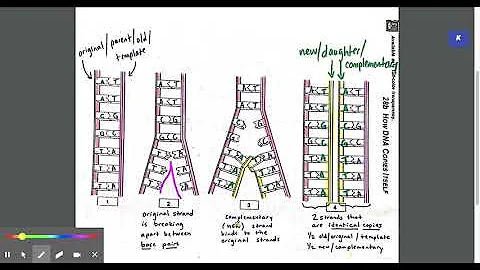 original/parent/old/
template
new/daughter/
complementary
28b How DNA Copies Itself
A T
A T
C G
G C
T A
T A
T A
1
A T
A T
C G
G C
T A
T A
T A
2
original strand
is breaking
apart between
base pairs
A T
A T
C G
G C
T A
T A
T A
3
complementary
(new) strand
binds to the
original strands
A T A T
A T A T
C G C G
G C G C
T A T A
T A T A
T A T A
4
2 strands that
are identical copies
1/2 old/original/template
1/2 new/complementary
K